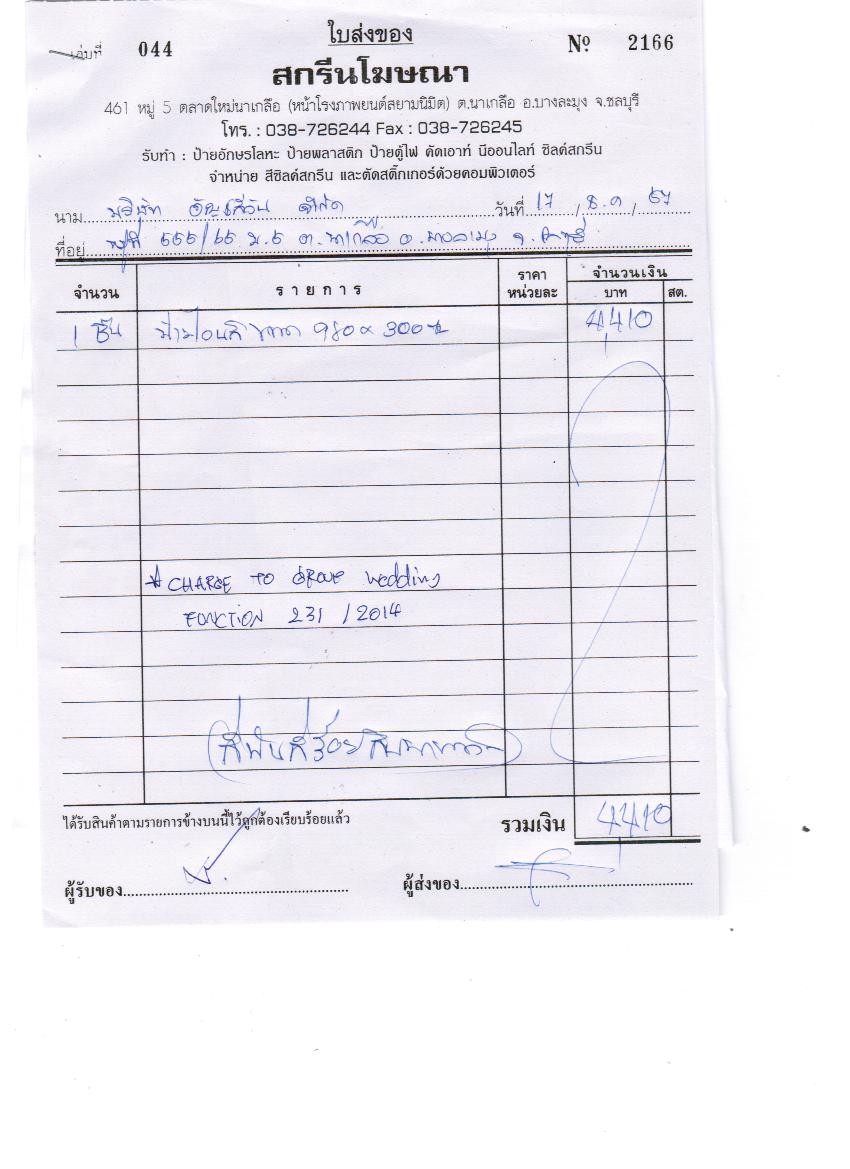 ใบส่งของ
เล่มที่ 044 Nº 2166
สกรีนโฆษณา
461 หมู่ 5 ตลาดใหม่นาเกลือ (หน้าโรงภาพยนต์สยามนิมิต) ต.นาเกลือ อ.บางละมุง จ.ชลบุรี
โทร. : 038-726244 Fax : 038-726245
รับทำ : ป้ายอักษรโลหะ ป้ายพลาสติก ป้ายตู้ไฟ คัดเอาท์ นีออนไลท์ ซิลค์สกรีน
จำหน่าย สีซิลค์สกรีน และตัดสติ๊กเกอร์ด้วยคอมพิวเตอร์
นาม บริษัท จำกัด วันที่ 17 / ธ.ค / 57
ที่อยู่ ต.นาเกลือ อ.บางละมุง จ.ชลบุรี
จำนวน รายการ ราคา หน่วยละ จำนวนเงิน บาท สต.
1 ชิ้น 980 x 300 4410
* CHARGE TO GROUP wedding
FUNCTION 231 / 2014
(สี่พันสี่ร้อยสิบบาทถ้วน)
ได้รับสินค้าตามรายการข้างบนนี้ไว้ถูกต้องเรียบร้อยแล้ว รวมเงิน 4410
ผู้รับของ ผู้ส่งของ